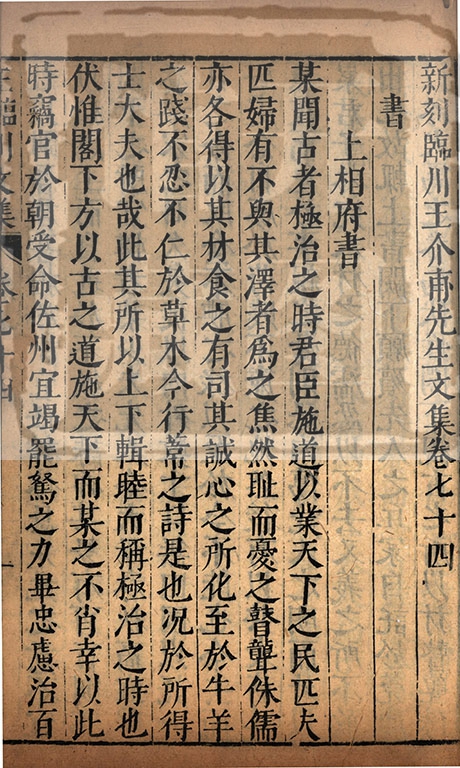 新刻臨川王介甫先生文集卷七十四
書
上相府書
某聞古者極治之時君臣施道以業天下之民匹夫
匹婦有不與其澤者爲之焦然耻而憂之瞽聾侏儒
亦各得以其材食之有司其誠心之所化至於牛羊
之踐不忍不仁於草木今行葦之詩是也况於所得
士大夫也哉此其所以上下輯睦而稱極治之時也
伏惟閣下方以古之道施天下而某之不肖幸以此
時竊官於朝受命佐州宜竭罷駑之力畢忠慮治百
王臨川文集 卷七十四 一